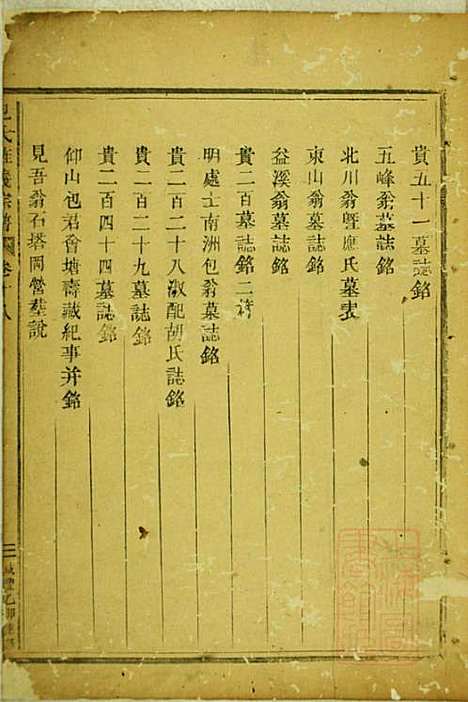 貴五十一墓誌銘
五峰翁墓誌銘
北川翁曁應氏墓表
東山翁墓誌銘
益溪翁墓誌銘
貴二百墓誌銘二首
明處士南洲包翁墓誌銘
貴二百二十八淑配胡氏誌銘
貴二百二十九墓誌銘
貴二百四十四墓誌銘
仰山包君香塘壽藏紀事并銘
見吾翁石塔岡營墓說
包氏 宗譜 卷十八
三 咸豐乙卯